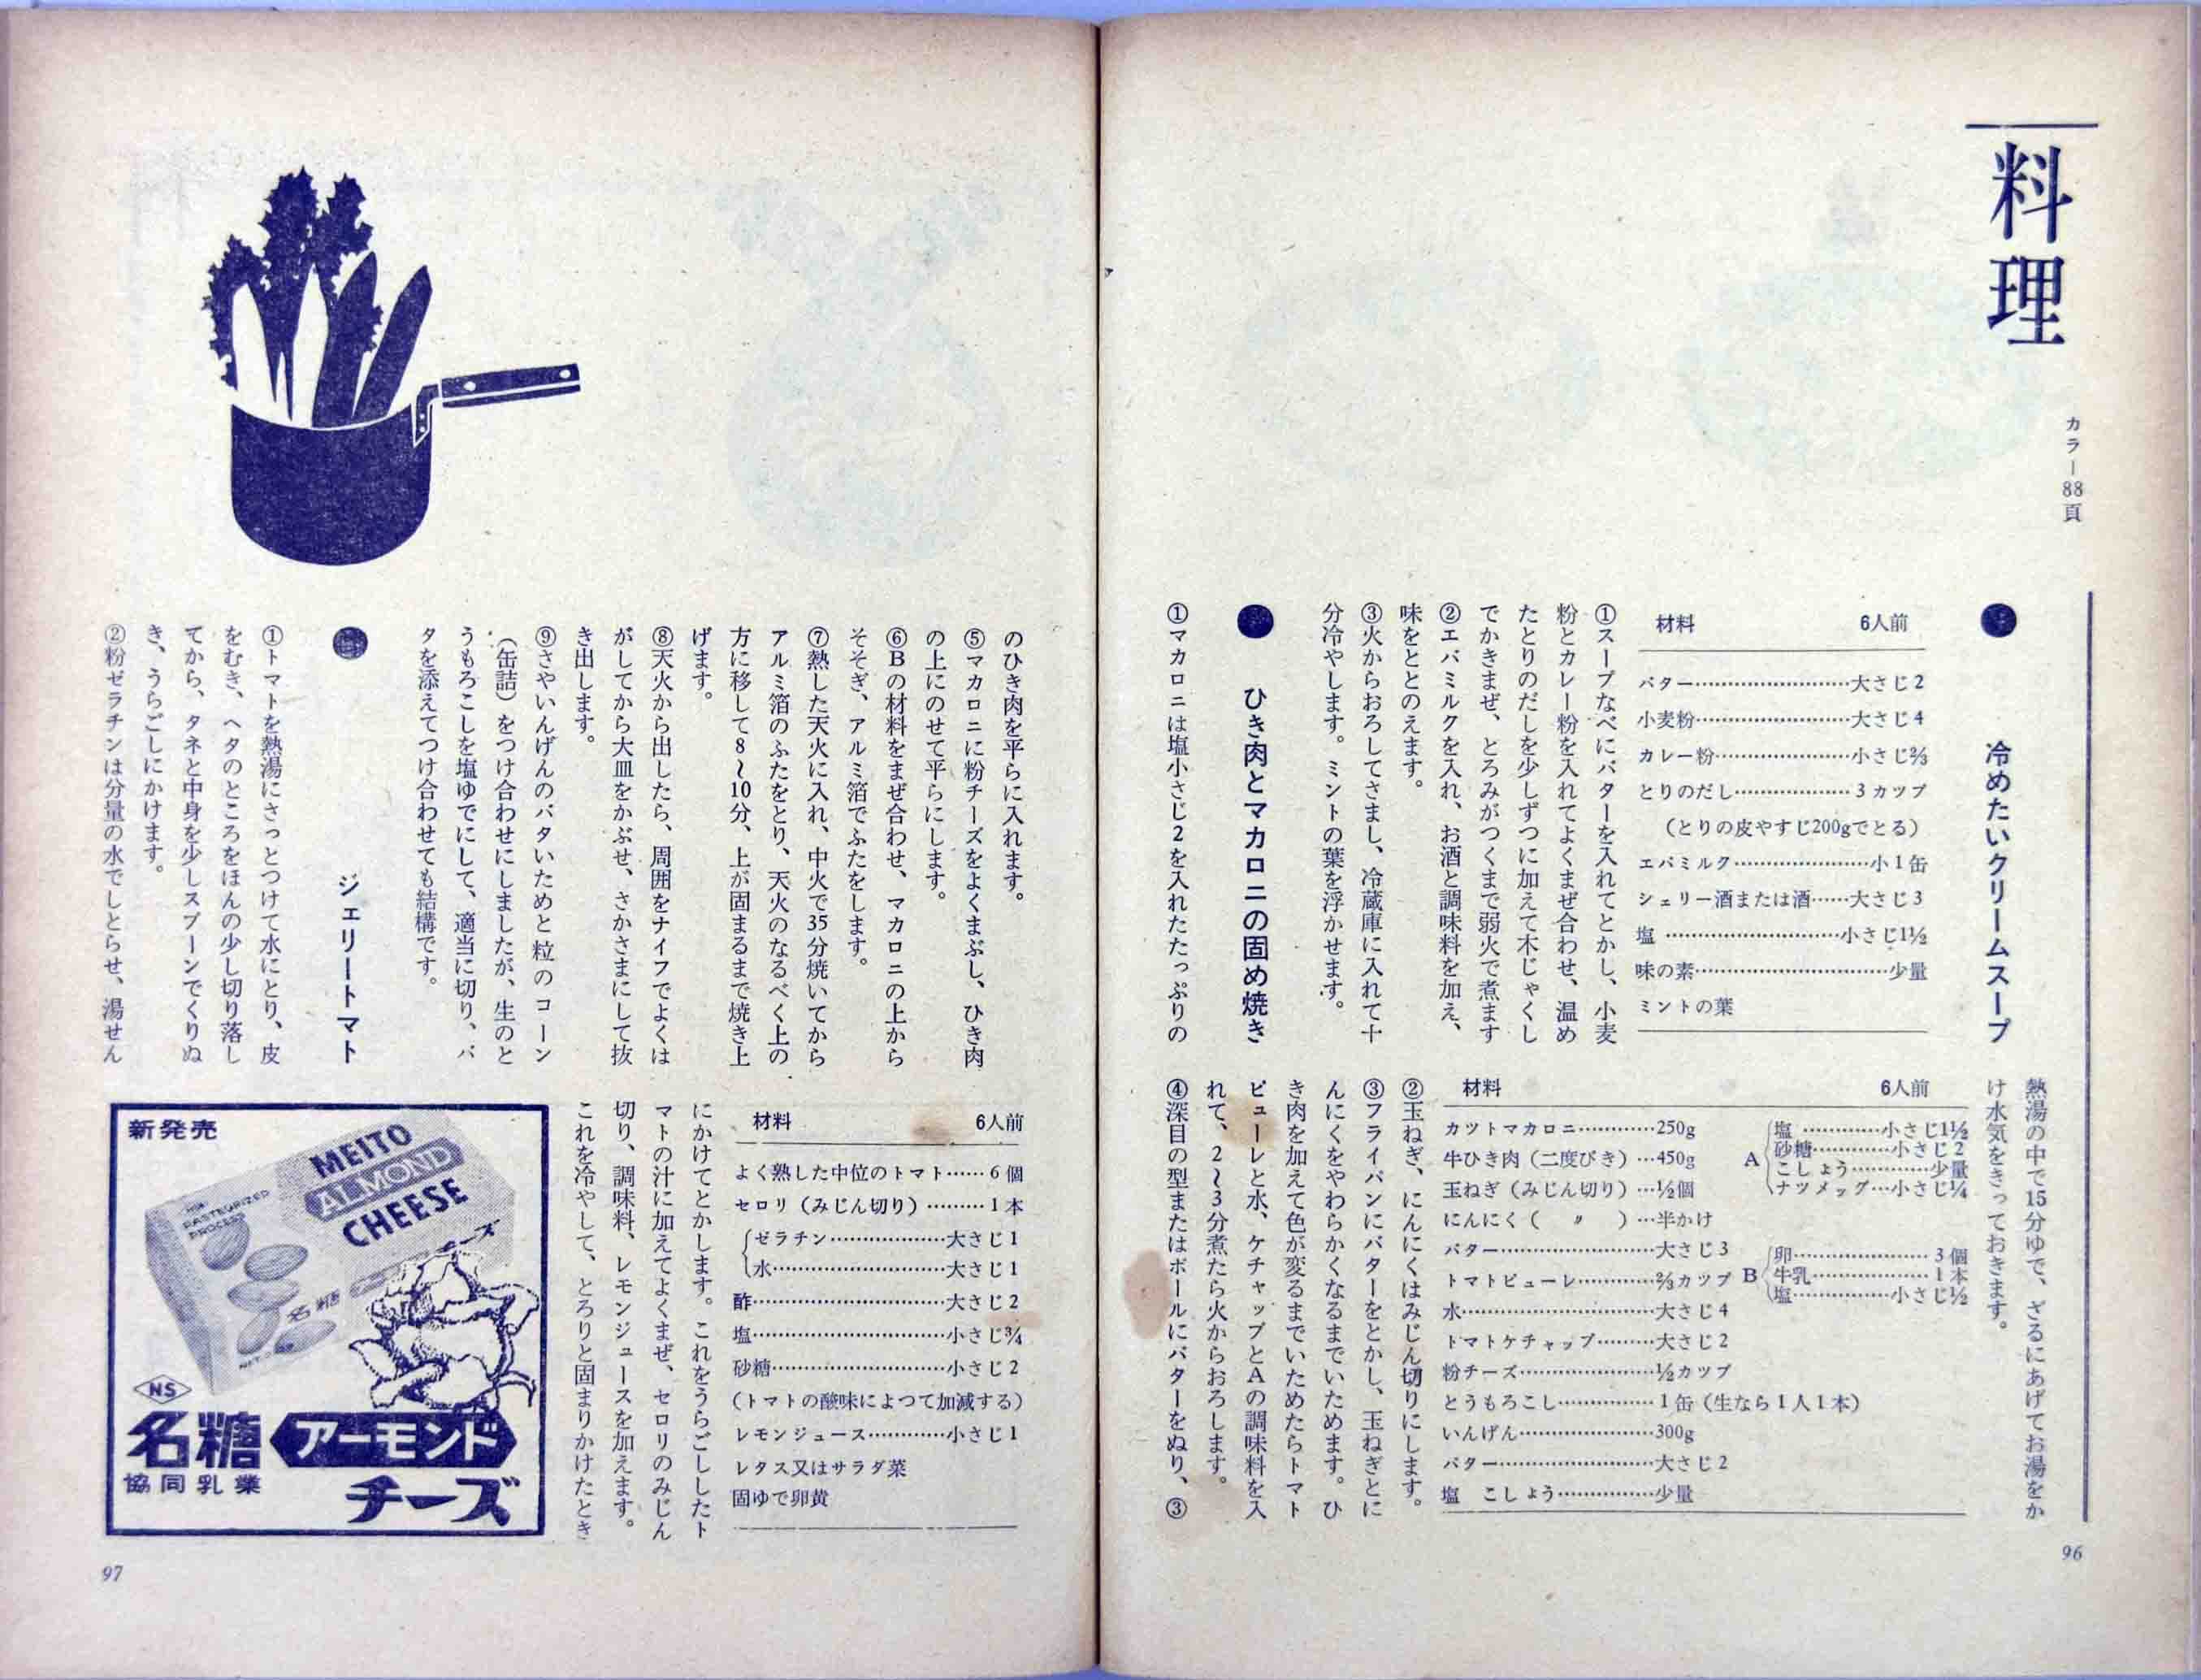 料理
カラー88頁
冷めたいクリームスープ
材料 6人前
バター……………………大さじ2
小麦粉……………………大さじ4
カレー粉…………………小さじ⅔
とりのだし………………3カップ
(とりの皮やすじ200gでとる)
エバミルク…………………小1缶
シェリー酒または酒……大さじ3
塩………………………小さじ1½
味の素…………………………少量
ミントの葉
①スープなべにバターを入れてとかし、小麦
粉とカレー粉を入れてよくまぜ合わせ、温め
たとりのだしを少しずつに加えて木じゃくし
でかきまぜ、とろみがつくまで弱火で煮ます
②エバミルクを入れ、お酒と調味料を加え、
味をととのえます。
③火からおろしてさまし、冷蔵庫に入れて十
分冷やします。ミントの葉を浮かせます。
ひき肉とマカロニの固め焼き
①マカロニは塩小さじ2を入れたたっぷりの
熱湯の中で15分ゆで、ざるにあげてお湯をか
け水気をきっておきます。
材料 6人前
カツトマカロニ…………250g
牛ひき肉(二度びき)…450g
玉ねぎ(みじん切り)…½個
にんにく(〃)…半かけ
バター……………………大さじ3
トマトピューレ…………⅔カップ
水…………………………大さじ4
トマトケチャップ………大さじ2
粉チーズ…………………½カップ
とうもろこし……………1缶(生なら1人1本)
いんげん…………………300g
バター……………………大さじ2
塩 こしょう……………少量
A
塩…………小さじ1½
砂糖…………小さじ2
こしょう…………少量
ナツメッグ…小さじ¼
B
卵…………………3個
牛乳………………1本
塩……………小さじ½
②玉ねぎ、にんにくはみじん切りにします。
③フライパンにバターをとかし、玉ねぎとに
んにくをやわらかくなるまでいためます。ひ
き肉を加えて色が変るまでいためたらトマト
ピューレと水、ケチャップとAの調味料を入
れて、2〜3分煮たら火からおろします。
④深目の型またはボールにバターをぬり、③
96
のひき肉を平らに入れます。
⑤マカロニに粉チーズをよくまぶし、ひき肉
の上にのせて平らにします。
⑥Bの材料をまぜ合わせ、マカロニの上から
そそぎ、アルミ箔でふたをします。
⑦熱した天火に入れ、中火で35分焼いてから
アルミ箔のふたをとり、天火のなるべく上の
方に移して8〜10分、上が固まるまで焼き上
げます。
⑧天火から出したら、周囲をナイフでよくは
がしてから大皿をかぶせ、さかさまにして抜
き出します。
⑨さやいんげんのバタいためと粒のコーン
(缶詰)をつけ合わせにしましたが、生のと
うもろこしを塩ゆでにして、適当に切り、バ
タを添えてつけ合わせても結構です。
ジェリートマト
①トマトを熱湯にさっとつけて水にとり、皮
をむき、ヘタのところをほんの少し切り落し
てから、タネと中身を少しスプーンでくりぬ
き、うらごしにかけます。
②粉ゼラチンは分量の水でしとらせ、湯せん
材料 6人前
よく熟した中位のトマト……6個
セロリ(みじん切り)………1本
ゼラチン………………大さじ1
水………………………大さじ1
酢…………………………大さじ2
塩…………………………小さじ¾
砂糖………………………小さじ2
(トマトの酸味によつて加減する)
レモンジュース…………小さじ1
レタス又はサラダ菜
固ゆで卵黄
にかけてとかします。これをうらごししたト
マトの汁に加えてよくまぜ、セロリのみじん
切り、調味料、レモンジュースを加えます。
これを冷やして、とろりと固まりかけたとき
新発売
MEITO
ALMOND
CHEESE
PASTEURIZED
PROCESS
名糖
チーズ
NS
名糖
アーモンド
協同乳業
チーズ
97